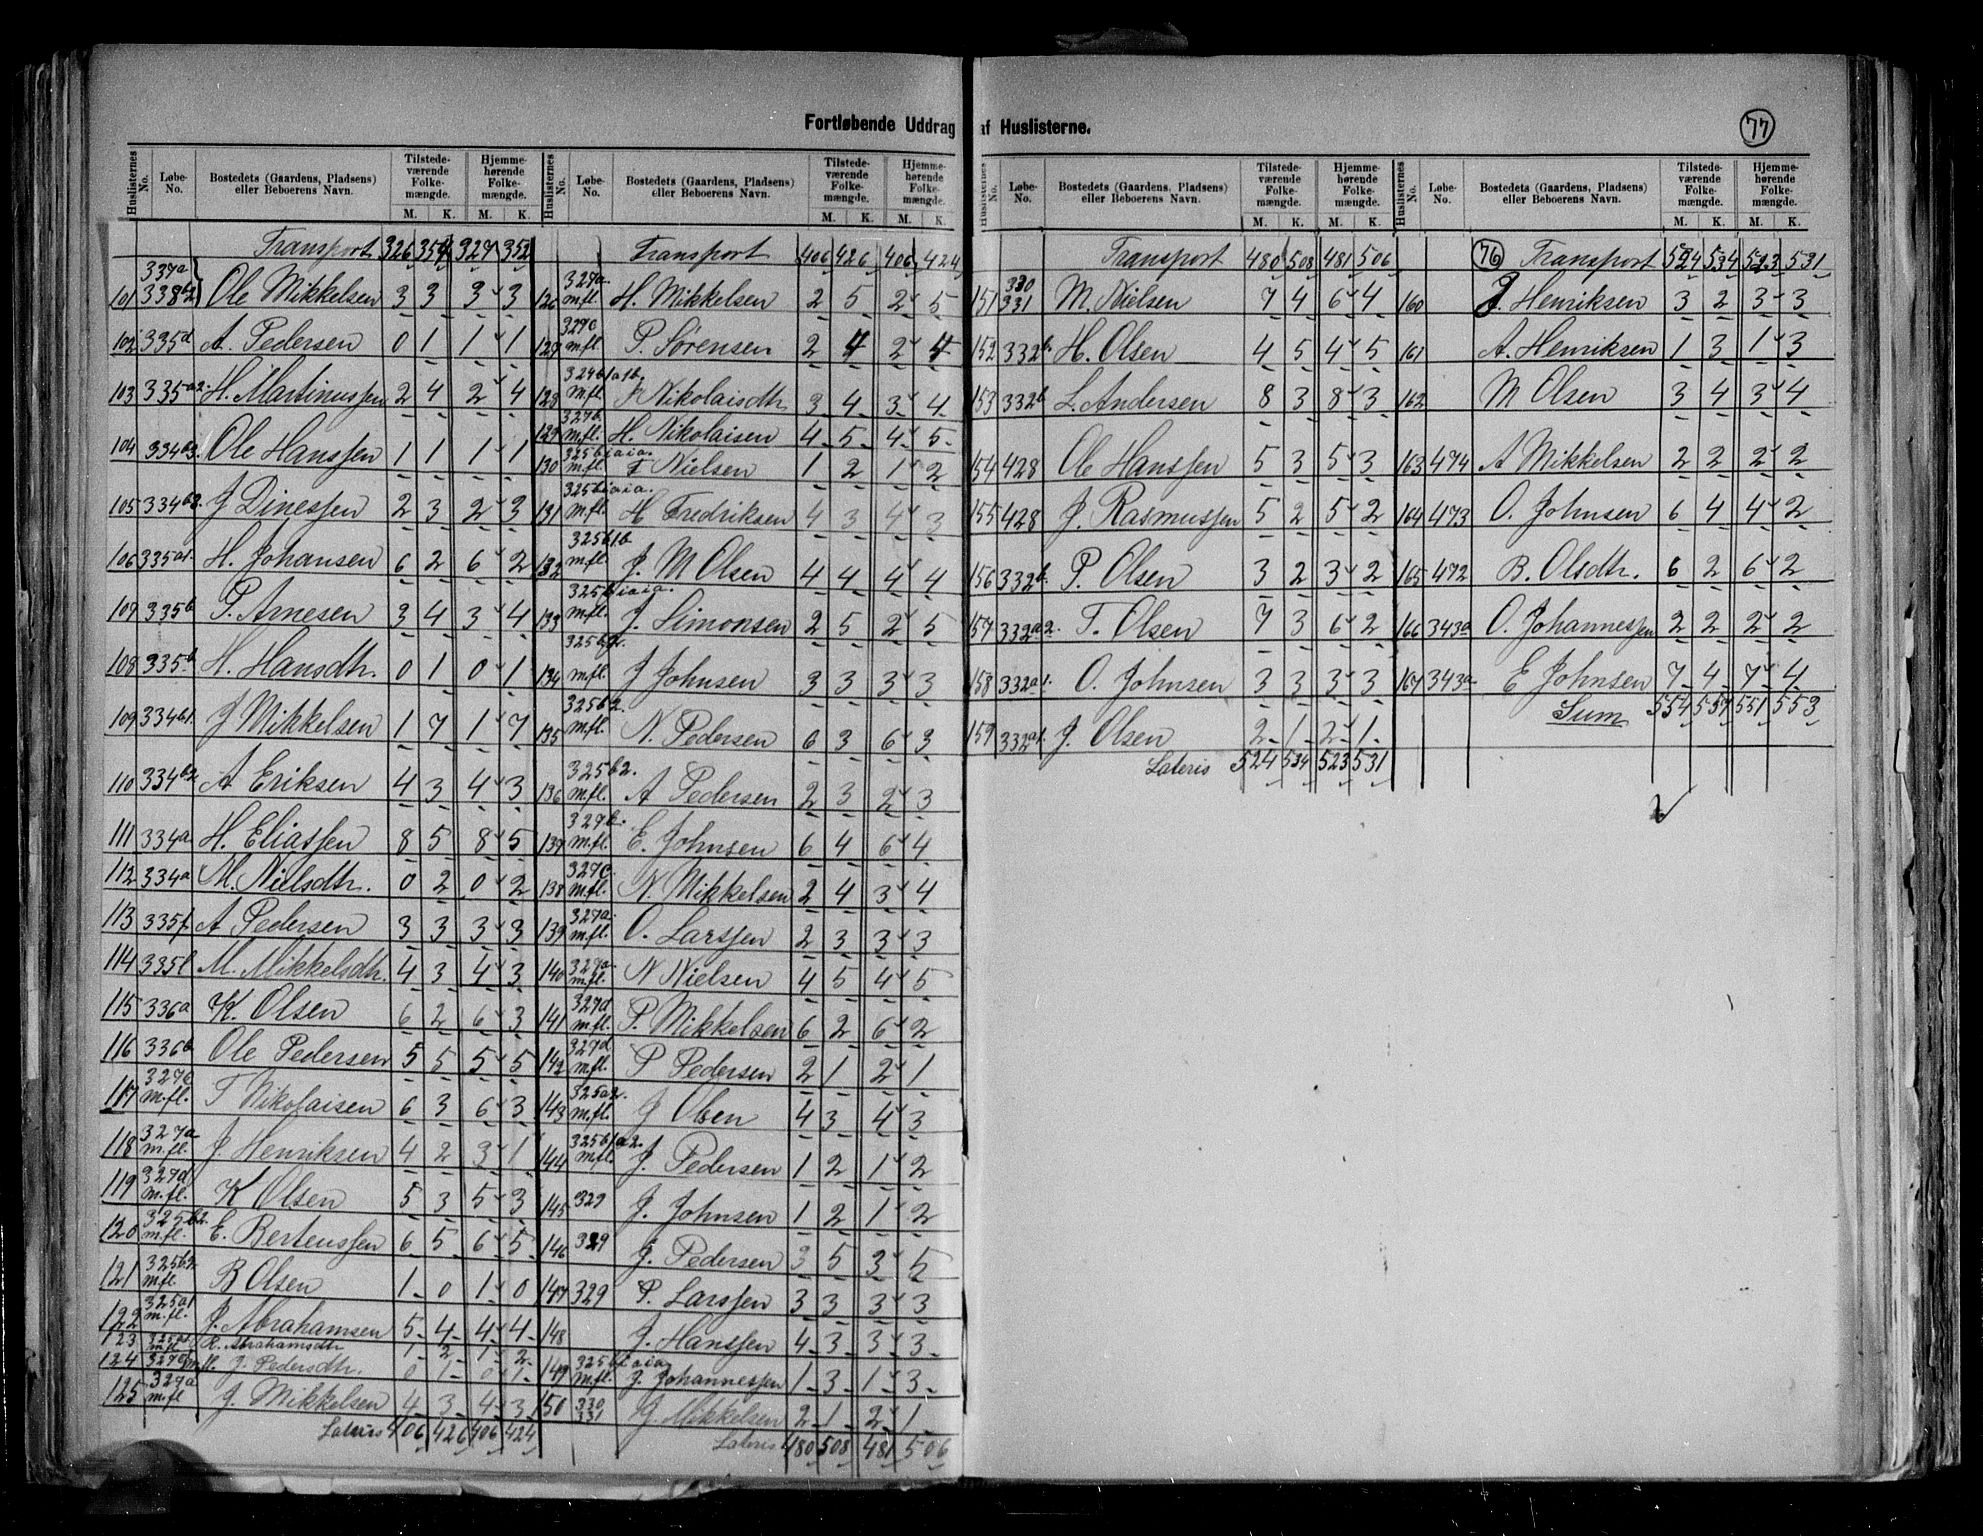 Fortløbende Uddrag af Huslisterne.
77
Huslisternes No. Løbe-No. Bostedets (Gaardens, Pladsens) eller Beboerens Navn. Tilstedeværende Folkemængde. M. K. Hjemmehørende Folkemængde. M. K.
Transport 326 354 327 352
101 337a 338b2 Ole Mikkelsen 3 3 3 3
102 335d A. Pedersen 0 1 1 1
103 335a2 H. Martinussen 2 4 2 4
104 334a3 Ole Hanssen 1 1 1 1
105 334b2 J Dinessen 2 3 2 3
106 335a1 H. Johansen 6 2 6 2
107 335b P. Arnesen 3 4 3 4
108 335b H. Hansdtr. 0 1 0 1
109 334b1 J Mikkelsen 1 7 1 7
110 334b2 A Eriksen 4 3 4 3
111 334a H. Eliassen 8 5 8 5
112 334a M. Nielsdtr. 0 2 0 2
113 335f A Pedersen 3 3 3 3
114 335l M. Mikkelsdtr. 4 3 4 3
115 336a K Olsen 6 2 6 3
116 336b Ole Pedersen 5 5 5 5
117 327c m.fl. T Nikolaisen 6 3 6 3
118 327a m.fl. J Henriksen 4 2 3 1
119 327d m.fl. K Olsen 5 3 5 3
120 325b2 m.fl. E. Bertenssen 6 5 6 5
121 325b2 m.fl. B Olsen 1 0 1 0
122 325a1 m.fl. J. Abrahamsen 5 4 4 4
123 325a1 m.fl. K. Abrahamsdtr 1 2 1 2
124 327c m.fl. J. Pedersdtr. 0 1 0 1
125 327a m.fl J. Mikkelsen 4 3 4 3
Lateris 406 426 406 424
Huslisternes No. Løbe-No. Bostedets (Gaardens, Pladsens) eller Beboerens Navn. Tilstedeværende Folkemængde. M. K. Hjemmehørende Folkemængde. M. K.
Transport 406 426 406 424
126 327a m.fl. H. Mikkelsen 2 5 2 5
127 327c m.fl. P. Sørensen 2 4 2 4
128 324b1a1b. m.fl J Nikolaisdtr 3 4 3 4
129 327b m.fl. H. Nikolaisen 4 5 4 5
130 325b1a1a. m.fl T Nielsen 1 2 1 2
131 325b1a1a. m.fl. H Fredriksen 4 3 4 3
132 325b1b m.fl. J. M Olsen 4 4 4 4
133 325b1a1a. m.fl. J. Simonsen 2 5 2 5
134 325b2. m.fl. J Johnsen 3 3 3 3
135 325b2. m.fl. N. Pedersen 6 3 6 3
136 325b2. m.fl. A Pedersen 2 3 2 3
137 327b. m.fl. E. Johnsen 6 4 6 4
138 327c. m.fl. N. Mikkelsen 2 4 3 4
139 327a. m.fl. O. Larssen 2 3 3 3
140 327a. m.fl. N Nielsen 4 5 4 5
141 327d m.fl. P. Mikkelsen 6 2 6 2
142 327d m.fl. P Pedersen 2 1 2 1
143 325a2. m.fl. J Olsen 4 3 4 3
144 325b1a2. m.fl. J. Pedersen 1 2 1 2
145 329 J. Johnsen 1 2 1 2
146 329 J. Pedersen 3 5 3 5
147 329 P. Larssen 3 3 3 3
148 J. Hanssen 4 3 3 3
149 325b1a1a m.fl. J. Johannessen 1 3 1 3
150 330 331 J Mikkelsen 2 1 2 1
Lateris 480 508 481 506
Huslisternes No. Løbe-No. Bostedets (Gaardens, Pladsens) eller Beboerens Navn. Tilstedeværende Folkemængde. M. K. Hjemmehørende Folkemængde. M. K.
Transport 480 508 481 506
151 330 331 M. Nielsen 7 4 6 4
152 332b. H. Olsen 4 5 4 5
153 332b L. Andersen 8 3 8 3
154 428 Ole Hanssen 5 3 5 3
155 428 J. Rasmussen 5 2 5 2
156 332b. P. Olsen 3 2 3 2
157 332a2. T. Olsen 7 3 6 2
158 332a1. O. Johnsen 3 3 3 3
159 332a1. J. Olsen 2 1 2 1
Lateris 524 534 523 531
Huslisternes No. Løbe-No. Bostedets (Gaardens, Pladsens) eller Beboerens Navn. Tilstedeværende Folkemængde. M. K. Hjemmehørende Folkemængde. M. K.
76 Transport 524 534 523 531
160 J. Henriksen 3 2 3 3
161 A. Henriksen 1 3 1 3
162 M Olsen 3 4 3 4
163 474 A Mikkelsen 2 2 2 2
164 473 O. Johnsen 6 4 4 2
165 472 B. Olsdtr. 6 2 6 2
166 343a O. Johannessen 2 2 2 2
167 343a E Johnsen 7 4 7 4
Sum 554 557 551 553